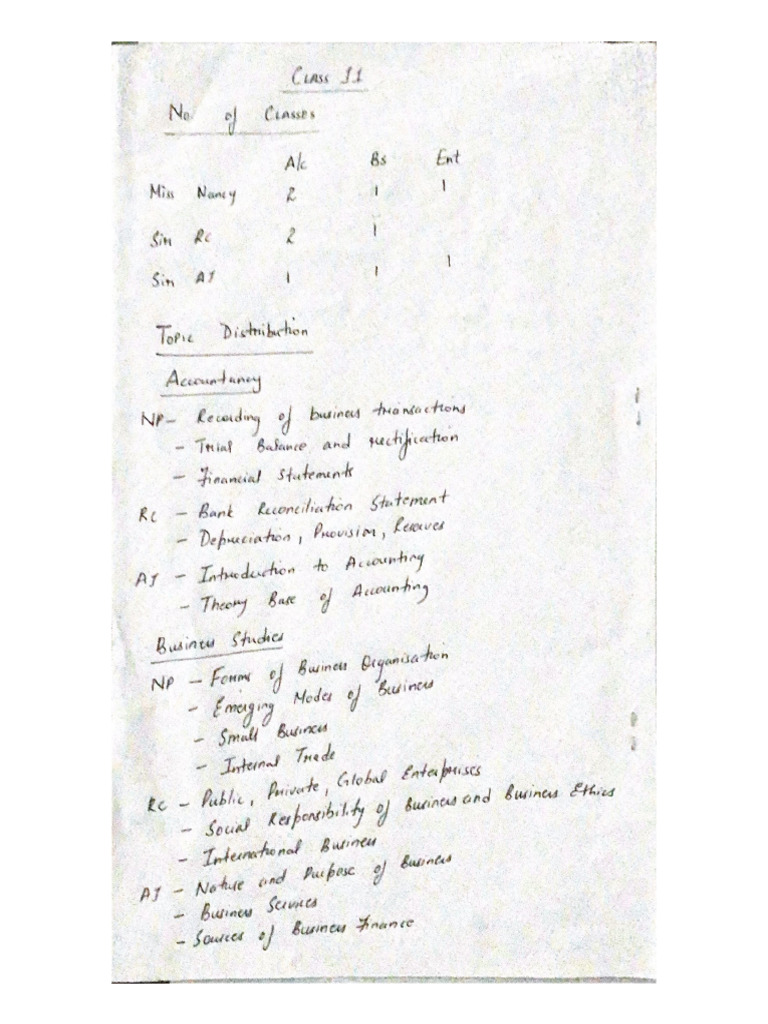 Class 11
No of Classes
A/c Bs Ent
Miss Nancy 2 1 1
Sir RC 2 1
Sir AJ 1 1 1
Topic Distribution
Accountancy
NP - Recording of business transactions
- Trial Balance and rectification
- Financial Statements
RC - Bank Reconciliation Statement
- Depreciation, Provision, Reserves
AJ - Introduction to Accounting
- Theory Base of Accounting
Business Studies
NP - Forms of Business Organisation
- Emerging Modes of Business
- Small Business
- Internal Trade
RC - Public, Private, Global Enterprises
- Social Responsibility of Business and Business Ethics
- International Business
AJ - Nature and Purpose of Business
- Business Services
- Sources of Business Finance